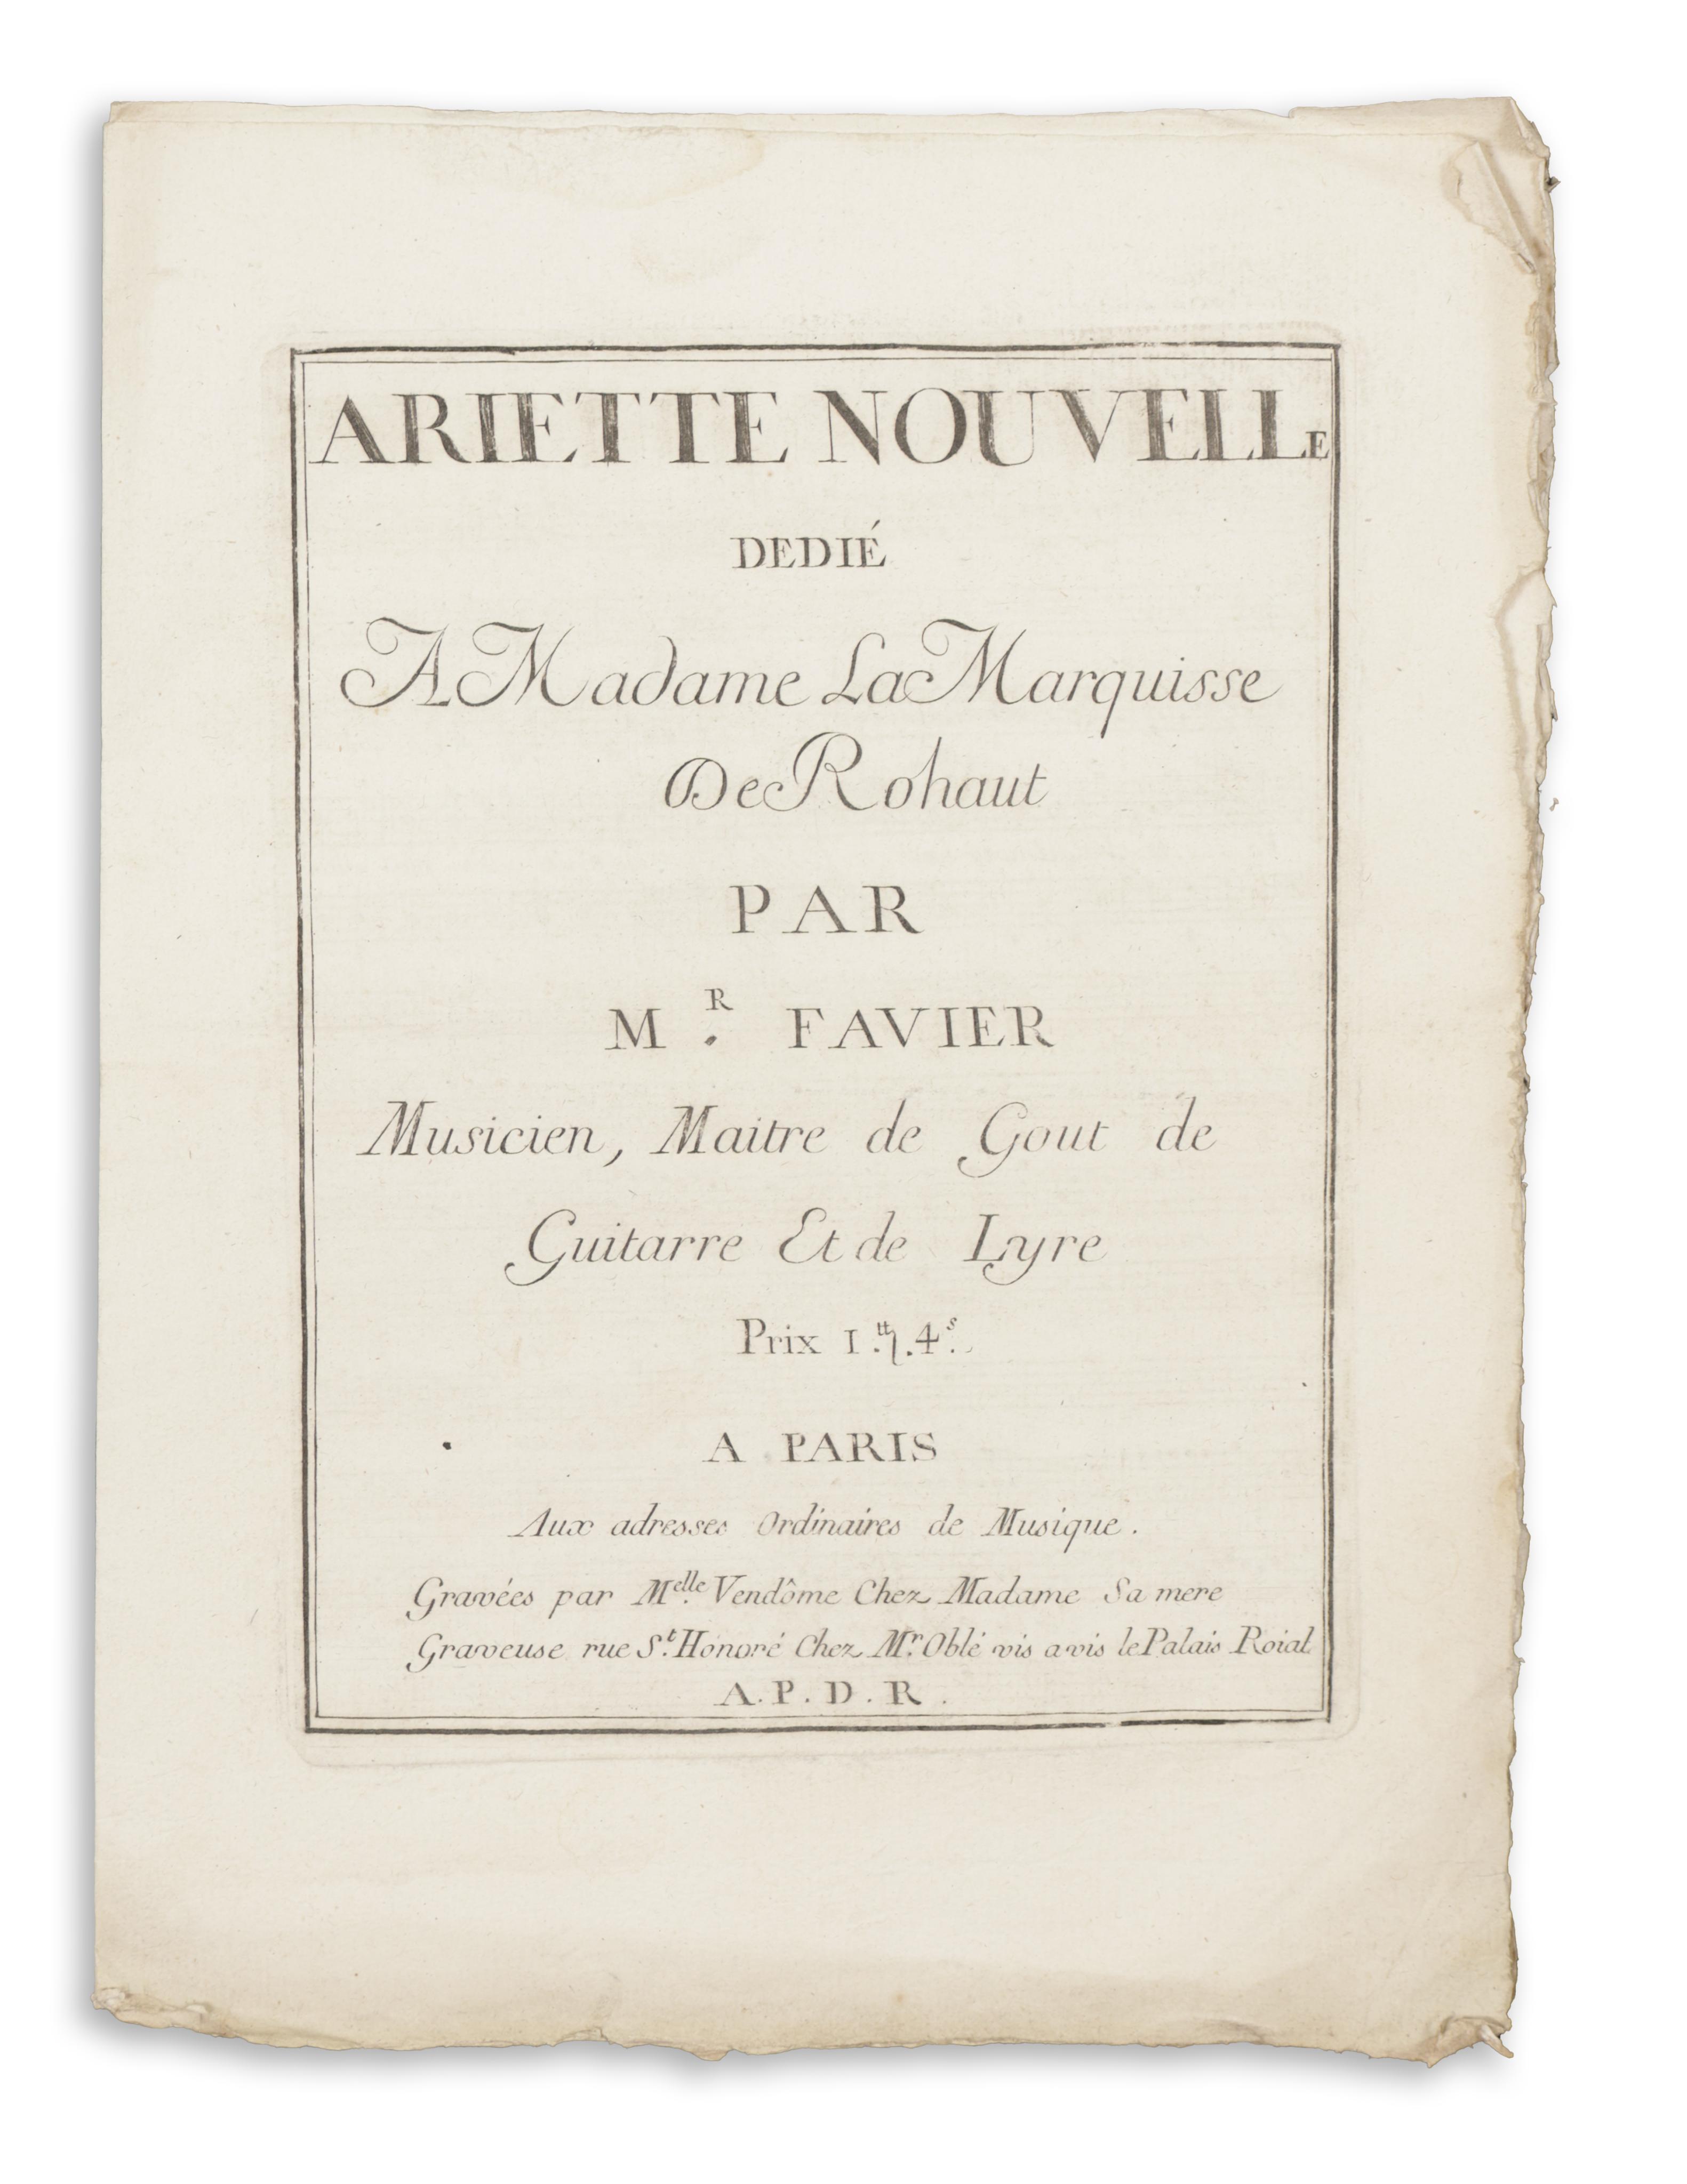 ARIETTE NOUVELLE
DEDIÉ
A Madame La Marquisse
De Rohaut
PAR
M.R FAVIER
Musicien, Maitre de Gout de
Guitarre Et de Lyre
Prix 1.tt 4.s
A PARIS
Aux adresses Ordinaires de Musique.
Gravées par M.elle Vendôme Chez Madame Sa mere
Graveuse rue S.t Honoré Chez M.r Oblé vis avis le Palais Roial
A.P.D.R.